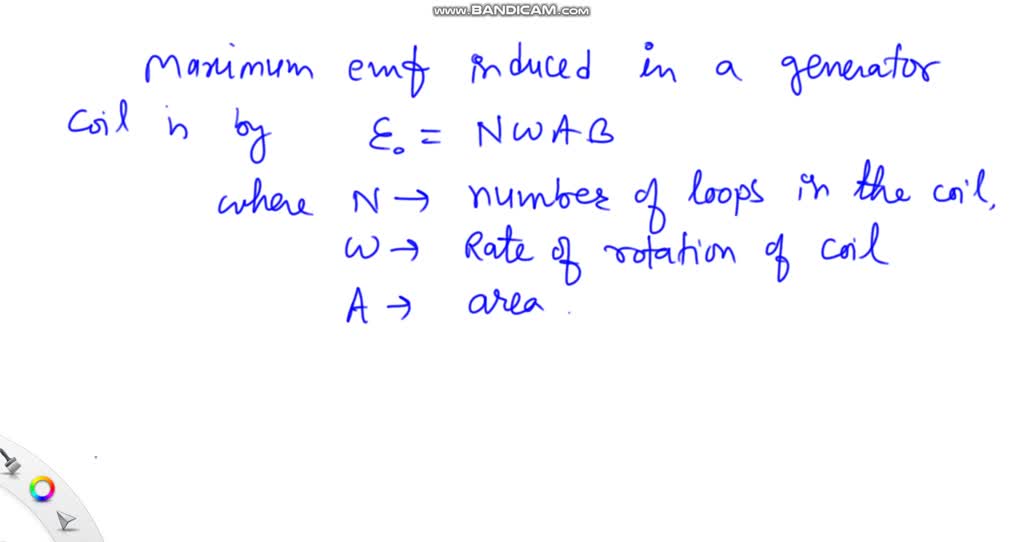 www.BANDICAM.com
Maximum emf induced in a generator
coil is by ε₀ = NωAB
where N → number of loops in the coil,
ω → Rate of rotation of coil
A → area